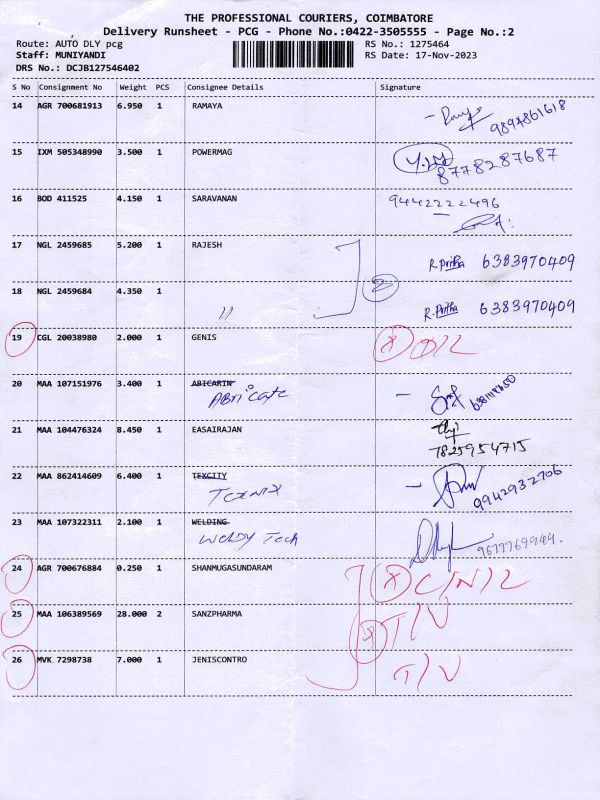 THE PROFESSIONAL COURIERS, COIMBATORE
Delivery Runsheet - PCG - Phone No.:0422-3505555 - Page No.:2
Route: AUTO DLY pcg RS No.: 1275464
Staff: MUNIYANDI RS Date: 17-Nov-2023
DRS No.: DCJB127546402
S No Consignment No Weight PCS Consignee Details Signature
14 AGR 700681913 6.950 1 RAMAYA
9897861618
15 IXM 505348990 3.500 1 POWERMAG
8778287687
16 BOD 411525 4.150 1 SARAVANAN 9442222496
17 NGL 2459685 5.200 1 RAJESH
R. Pritha 6383970409
2
18 NGL 2459684 4.350 1
" R. Pritha 6383970409
19 CGL 20038980 2.000 1 GENIS D/L
20 MAA 107151976 3.400 1 ABICARIN
ABricate
21 MAA 104476324 8.450 1 EASAIRAJAN
7825954715
22 MAA 862414609 6.400 1 TEXCITY
9942932706
23 MAA 107322311 2.100 1 WELDING
Weldy Tech 9677769944.
24 AGR 700676884 0.250 1 SHANMUGASUNDARAM C/N/L
25 MAA 106389569 28.000 2 SANZPHARMA T/V
26 MVK 7298738 7.000 1 JENISCONTRO T/V